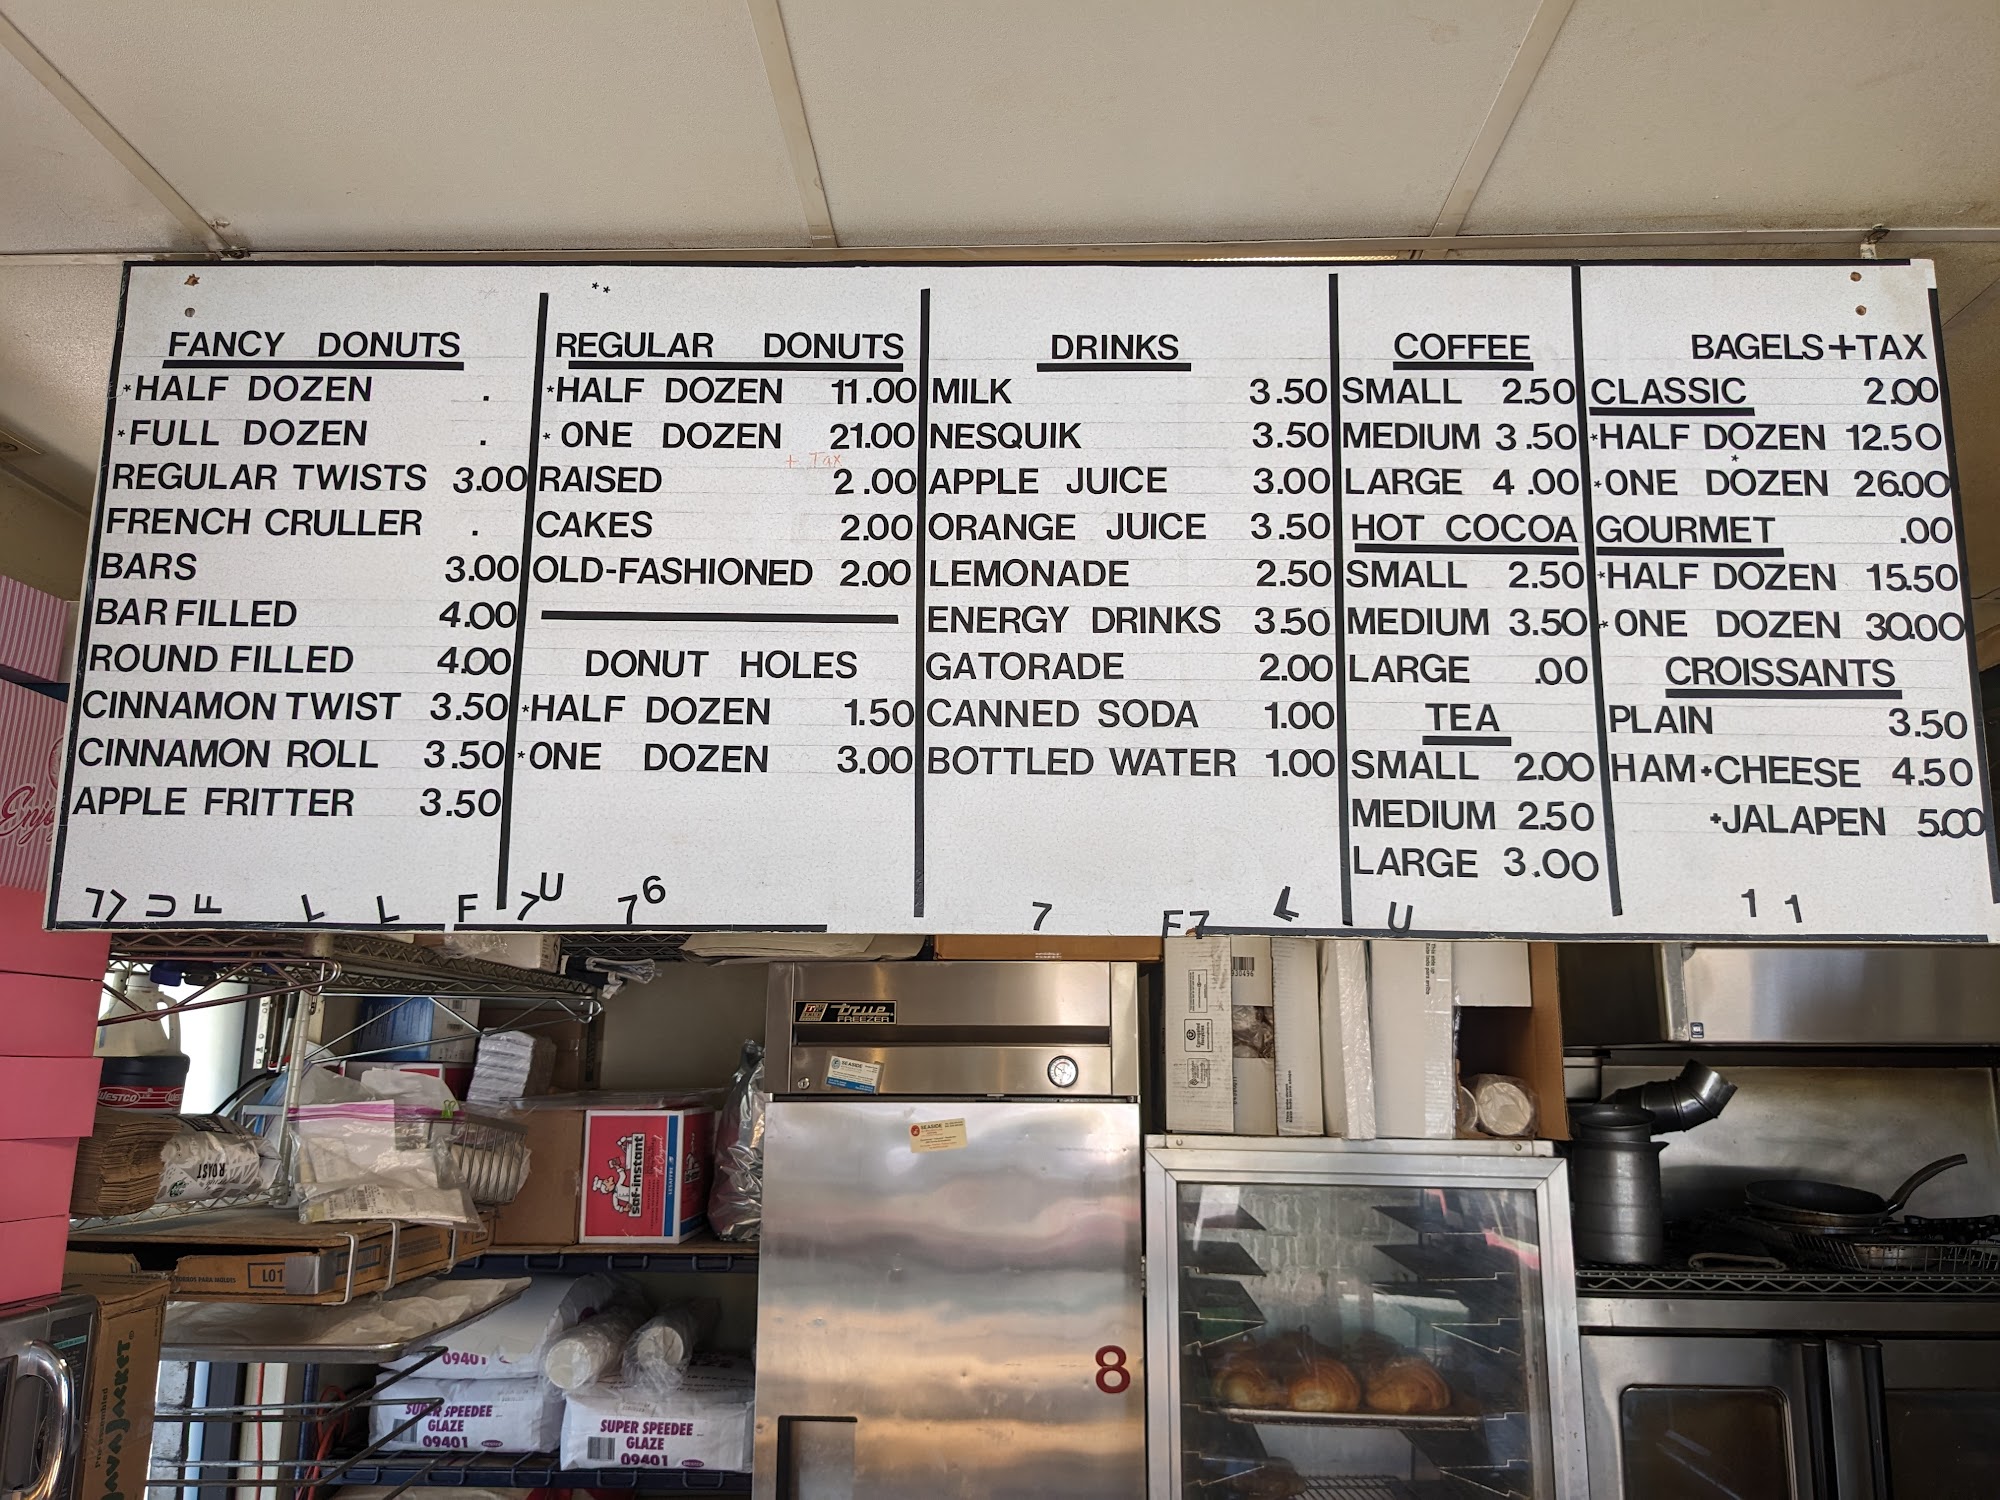 **
FANCY DONUTS
*HALF DOZEN .
*FULL DOZEN .
REGULAR TWISTS 3.00
FRENCH CRULLER .
BARS 3.00
BAR FILLED 4.00
ROUND FILLED 4.00
CINNAMON TWIST 3.50
CINNAMON ROLL 3.50
APPLE FRITTER 3.50
REGULAR DONUTS
*HALF DOZEN 11.00
*ONE DOZEN 21.00
+ Tax
RAISED 2.00
CAKES 2.00
OLD-FASHIONED 2.00
DONUT HOLES
*HALF DOZEN 1.50
*ONE DOZEN 3.00
DRINKS
MILK 3.50
NESQUIK 3.50
APPLE JUICE 3.00
ORANGE JUICE 3.50
LEMONADE 2.50
ENERGY DRINKS 3.50
GATORADE 2.00
CANNED SODA 1.00
BOTTLED WATER 1.00
COFFEE
SMALL 2.50
MEDIUM 3.50
LARGE 4.00
HOT COCOA
SMALL 2.50
MEDIUM 3.50
LARGE .00
TEA
SMALL 2.00
MEDIUM 2.50
LARGE 3.00
BAGELS+TAX
CLASSIC 2.00
*HALF DOZEN 12.50
*
*ONE DOZEN 26.00
GOURMET .00
*HALF DOZEN 15.50
*ONE DOZEN 30.00
CROISSANTS
PLAIN 3.50
HAM+CHEESE 4.50
+JALAPEN 5.00
7 7 U F L L F 7 U 7 6 7 F 7 L U 1 1
Enj
true
FREEZER
SEASIDE
SEASIDE
WESTCO
ROAST
saf-instant
the Original
L01
09401
SUPER SPEEDEE
GLAZE
09401
SUPER SPEEDEE
GLAZE
09401
8
JAVA JACKET
930496